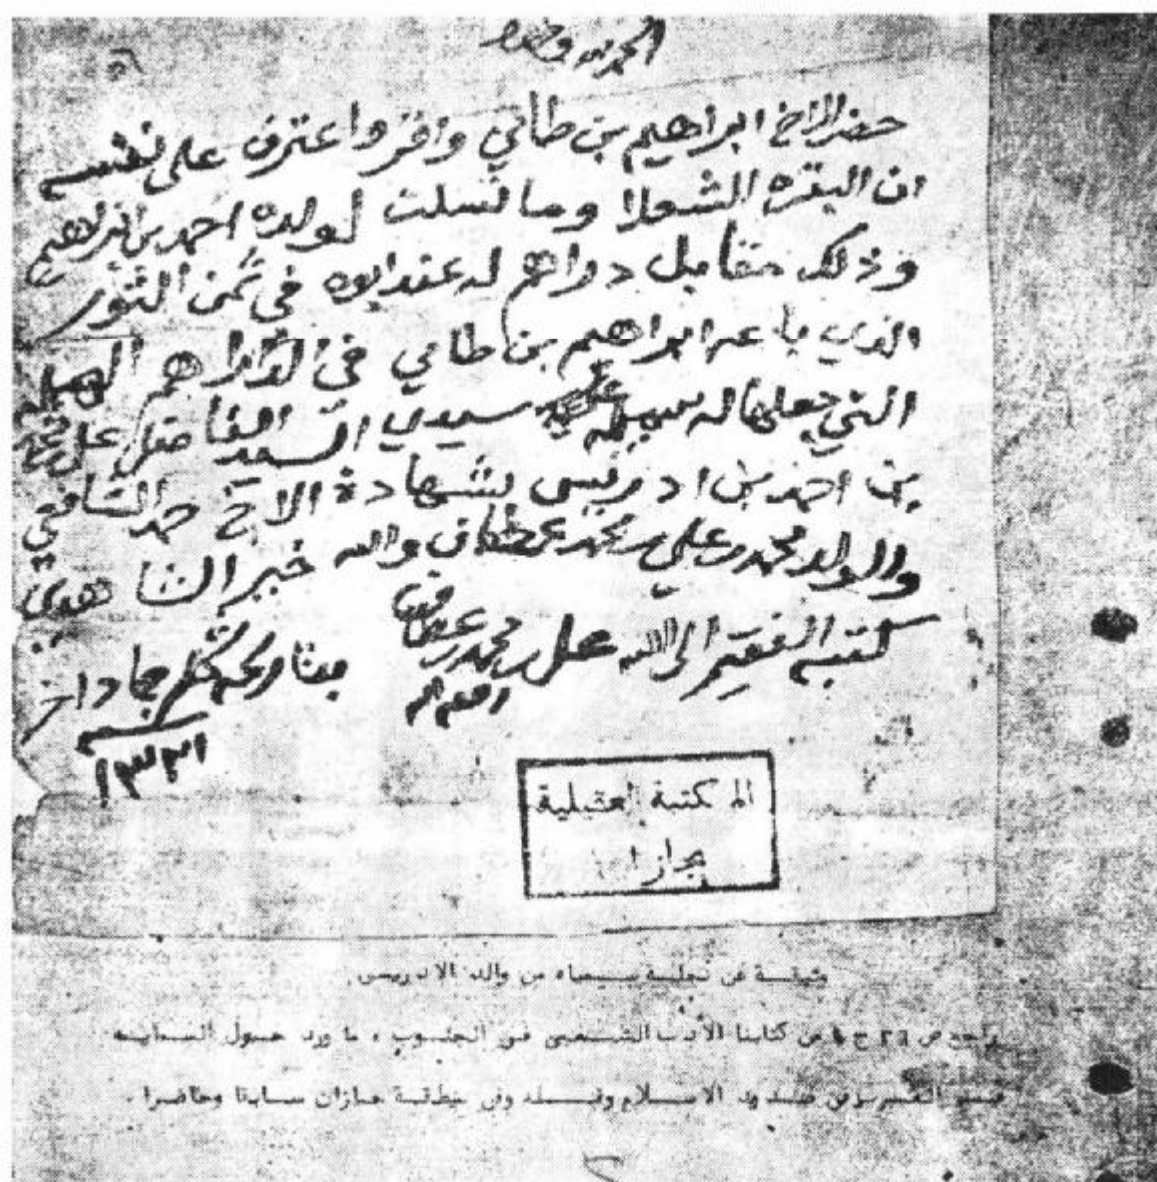 الحمد لله وحده
حضر الاخ ابراهيم بن طالبي واقر واعترف على نفسه
ان البقره الشعلا وما تسلت لولده احمد بن ابراهيم
وذلك مقابل دراهم له عند ابوه في ثمن الثور
الذي باعه ابراهيم بن طالبي في الدراهم
التي جعلها له سيدي السيد الفاضل علي بن محمد
بن احمد بن ادريس بشهادة الاخ حمد الشافعي
والولد محمد بن علي بن محمد عطيف والله خير الشاهدين
كتبه الفقير الى الله علي بن محمد بتاريخه شهر جماد اخر
سنة ١٣٢١
المكتبة العقيلية
بجازان
وثيقة عن من والد الادريسي
راجع ص ٢٦ ج ١ من كتابنا الأدب الشعبي في الجنوب ، ما ورد حول
الاسلام وقبله وفي منطقة جازان سابقا وحاضرا .